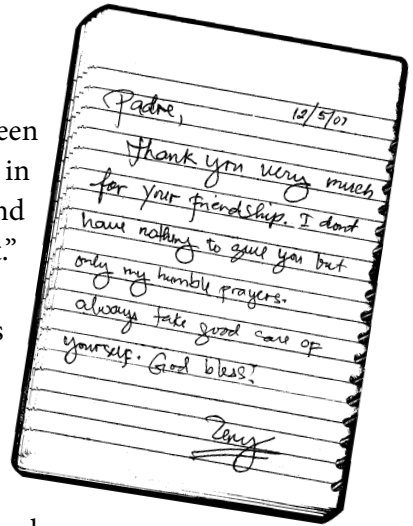 een
in
nd
.”
s
d
Padre, 12/5/07
Thank you very much
for your friendship. I dont
have nothing to give you but
only my humble prayers.
always take good care of
yourself. God bless!
Zeny